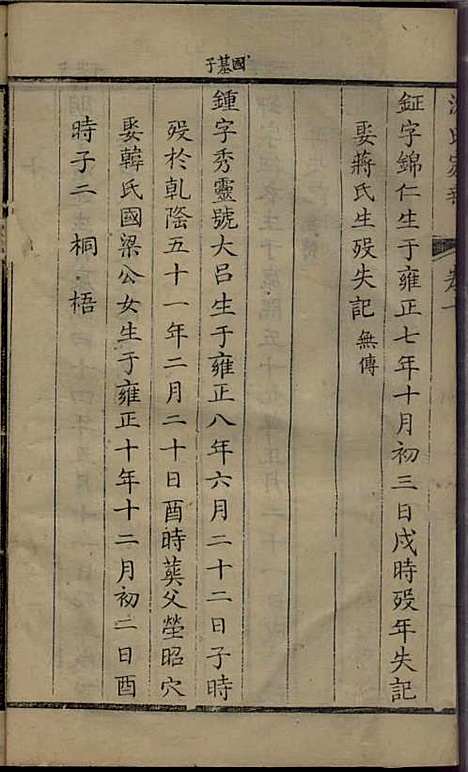 國基子
鉦字錦仁生于雍正七年十月初三日戌時歿年失記
娶蔣氏生歿失記無傳
鍾字秀靈號大呂生于雍正八年六月二十二日子時
歿於乹隆五十一年二月二十日酉時葬父塋昭穴
娶韓氏國梁公女生于雍正十年十二月初二日酉
時子二 桐 梧